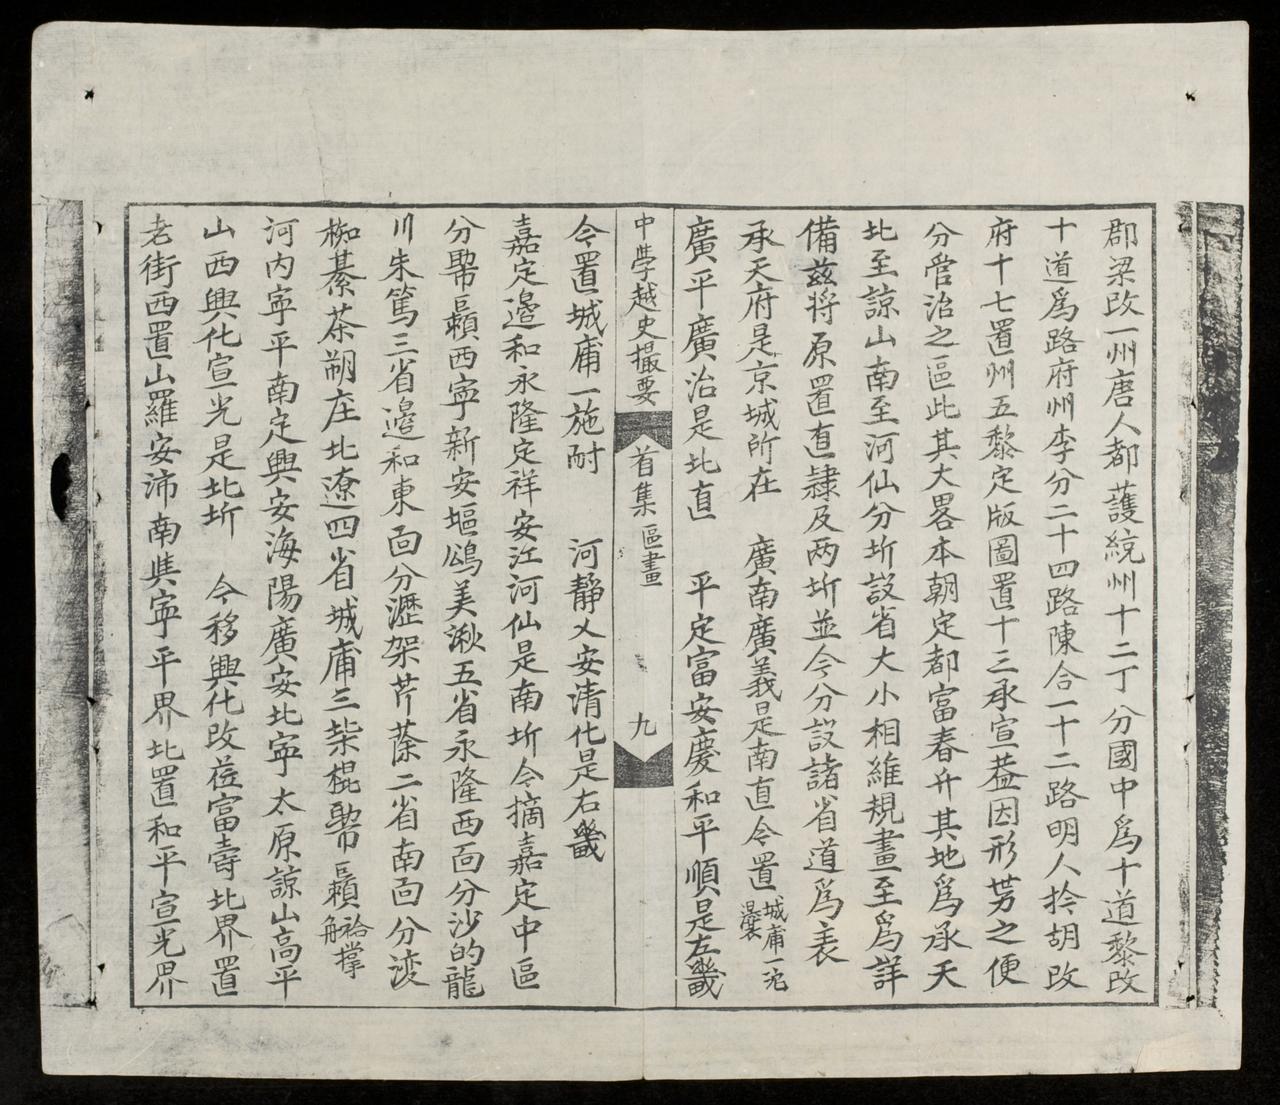 郡梁改一州唐人都護統州十二丁分國中爲十道黎改
十道爲路府州李分二十四路陳合一十二路明人扵胡改
府十七置州五黎定版圖置十三承宣葢因形势之便
分啻治之區此其大畧本朝定都富春升其地爲承天
北至諒山南至河仙分圻設省大小相維規畫至爲詳
備兹将原置直隷及两圻並今分設諸省道爲表
承天府是京城所在　廣南廣義是南直今置城庯一沱㶞
廣平廣治是北直　平定富安慶和平順是左畿
中學越史撮要　首集　區畫　九
今置城庯一施耐　河靜乂安清化是右畿
嘉定邉和永隆定祥安江河仙是南圻今摘嘉定中區
分𢄂㔷西寧新安塸鵮美湫五省永隆西面分沙的龍
川朱篤三省邉和東面分瀝架芹蒢二省南面分浚
椥綦茶朔庄北遼四省城庯三柴棍𢄂㔷袷撑舟
河內寧平南定興安海陽廣安北寧太原諒山高平
山西興化宣光是北圻　今移興化改莅富壽北界置
老街西置山羅安沛南興寧平界北置和平宣光界